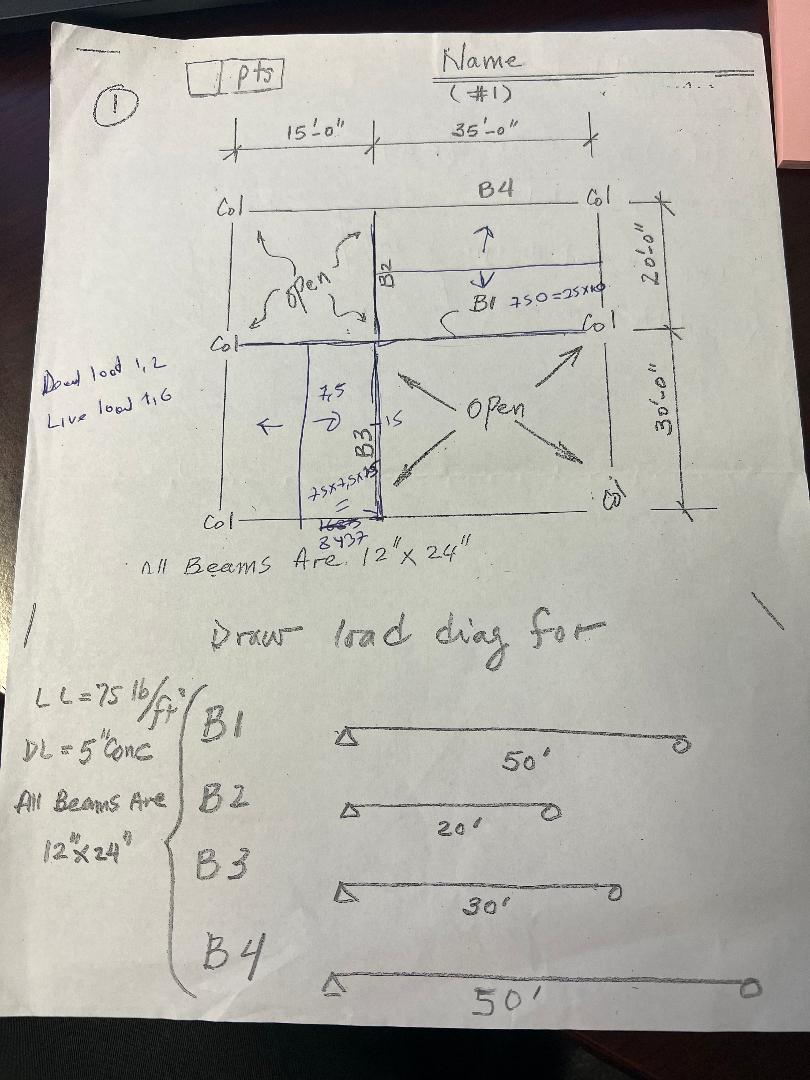 1
pts
Name
(#1)
15'-0"
35'-0"
Col
B4
Col
20'-0"
open
B2
B1
750=25x10
Col
Col
Dead load 1,2
Live load 1,6
7,5
OPen
30'-0"
15
B3
75x7,5x15
=
8437
Col
Col
All Beams Are 12"x24"
Draw load diag for
LL=75 lb/ft²
B1
50'
DL=5"Conc
B2
20'
All Beams Are
12"x24"
B3
30'
B4
50'